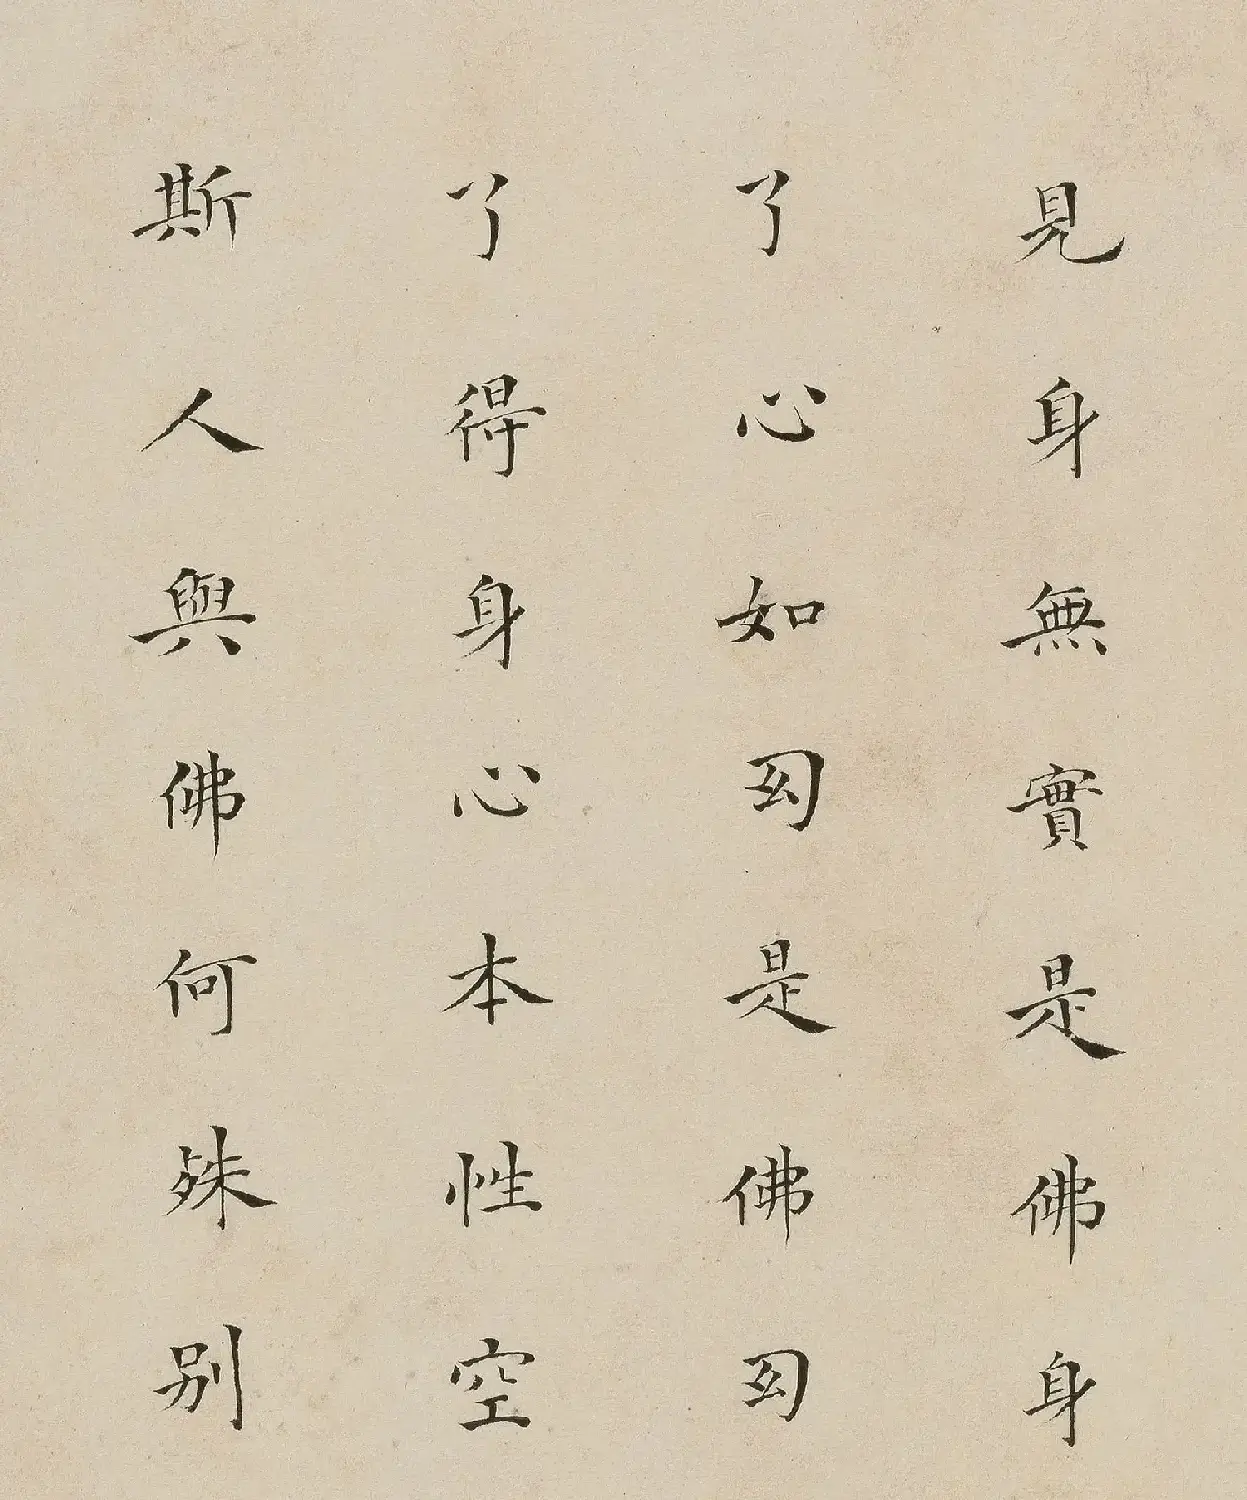 見身無實是佛身
了心如幻是佛幻
了得身心本性空
斯人與佛何殊別